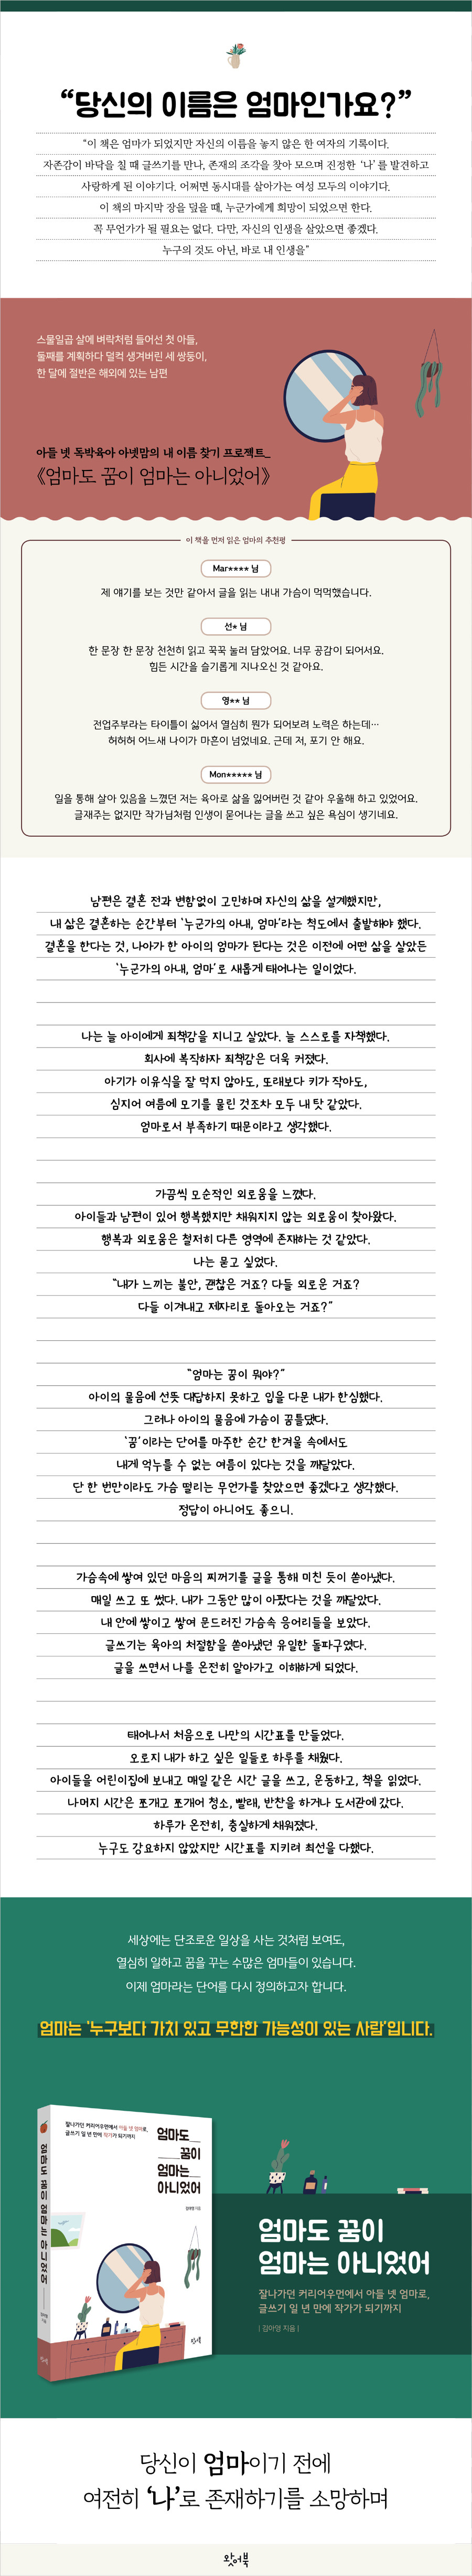 “당신의 이름은 엄마인가요?”
“이 책은 엄마가 되었지만 자신의 이름을 놓지 않은 한 여자의 기록이다.
자존감이 바닥을 칠 때 글쓰기를 만나, 존재의 조각을 찾아 모으며 진정한 ‘나’를 발견하고
사랑하게 된 이야기다. 어쩌면 동시대를 살아가는 여성 모두의 이야기다.
이 책의 마지막 장을 덮을 때, 누군가에게 희망이 되었으면 한다.
꼭 무언가가 될 필요는 없다. 다만, 자신의 인생을 살았으면 좋겠다.
누구의 것도 아닌, 바로 내 인생을”
스물일곱 살에 벼락처럼 들어선 첫 아들,
둘째를 계획하다 덜컥 생겨버린 세 쌍둥이,
한 달에 절반은 해외에 있는 남편
아들 넷 독박육아 아넷맘의 내 이름 찾기 프로젝트_
《엄마도 꿈이 엄마는 아니었어》
이 책을 먼저 읽은 엄마의 추천평
Mar**** 님
제 얘기를 보는 것만 같아서 글을 읽는 내내 가슴이 먹먹했습니다.
선* 님
한 문장 한 문장 천천히 읽고 꾹꾹 눌러 담았어요. 너무 공감이 되어서요.
힘든 시간을 슬기롭게 지나오신 것 같아요.
영** 님
전업주부라는 타이틀이 싫어서 열심히 뭔가 되어보려 노력은 하는데…
허허허 어느새 나이가 마흔이 넘었네요. 근데 저, 포기 안 해요.
Mon***** 님
일을 통해 살아 있음을 느꼈던 저는 육아로 삶을 잃어버린 것 같아 우울해 하고 있었어요.
글재주는 없지만 작가님처럼 인생이 묻어나는 글을 쓰고 싶은 욕심이 생기네요.
남편은 결혼 전과 변함없이 고민하며 자신의 삶을 설계했지만,
내 삶은 결혼하는 순간부터 ‘누군가의 아내, 엄마’라는 척도에서 출발해야 했다.
결혼을 한다는 것, 나아가 한 아이의 엄마가 된다는 것은 이전에 어떤 삶을 살았든
‘누군가의 아내, 엄마’로 새롭게 태어나는 일이었다.
나는 늘 아이에게 죄책감을 지니고 살았다. 늘 스스로를 자책했다.
회사에 복직하자 죄책감은 더욱 커졌다.
아기가 이유식을 잘 먹지 않아도, 또래보다 키가 작아도,
심지어 여름에 모기를 물린 것조차 모두 내 탓 같았다.
엄마로서 부족하기 때문이라고 생각했다.
가끔씩 모순적인 외로움을 느꼈다.
아이들과 남편이 있어 행복했지만 채워지지 않는 외로움이 찾아왔다.
행복과 외로움은 철저히 다른 영역에 존재하는 것 같았다.
나는 묻고 싶었다.
“내가 느끼는 불안, 괜찮은 거죠? 다들 외로운 거죠?
다들 이겨내고 제자리로 돌아오는 거죠?”
“엄마는 꿈이 뭐야?”
아이의 물음에 선뜻 대답하지 못하고 입을 다문 내가 한심했다.
그러나 아이의 물음에 가슴이 꿈틀댔다.
‘꿈’이라는 단어를 마주한 순간 한겨울 속에서도
내게 억누를 수 없는 여름이 있다는 것을 깨달았다.
단 한 번만이라도 가슴 떨리는 무언가를 찾았으면 좋겠다고 생각했다.
정답이 아니어도 좋으니.
가슴속에 쌓여 있던 마음의 찌꺼기를 글을 통해 미친 듯이 쏟아냈다.
매일 쓰고 또 썼다. 내가 그동안 많이 아팠다는 것을 깨달았다.
내 안에 쌓이고 쌓여 문드러진 가슴속 응어리들을 보았다.
글쓰기는 육아의 처절함을 쏟아냈던 유일한 돌파구였다.
글을 쓰면서 나를 온전히 알아가고 이해하게 되었다.
태어나서 처음으로 나만의 시간표를 만들었다.
오로지 내가 하고 싶은 일들로 하루를 채웠다.
아이들을 어린이집에 보내고 매일 같은 시간 글을 쓰고, 운동하고, 책을 읽었다.
나머지 시간은 쪼개고 쪼개어 청소, 빨래, 반찬을 하거나 도서관에 갔다.
하루가 온전히, 충실하게 채워졌다.
누구도 강요하지 않았지만 시간표를 지키려 최선을 다했다.
세상에는 단조로운 일상을 사는 것처럼 보여도,
열심히 일하고 꿈을 꾸는 수많은 엄마들이 있습니다.
이제 엄마라는 단어를 다시 정의하고자 합니다.
엄마는 ‘누구보다 가치 있고 무한한 가능성이 있는 사람’입니다.
잘나가던 커리어우먼에서 아들 넷 엄마로,
글쓰기 일 년 만에 작가가 되기까지
엄마도
꿈이
엄마는
아니었어
김아영 지음
엄마도 꿈이 엄마는 아니었어
김아영 지음
왓어북
왓어북
엄마도 꿈이
엄마는 아니었어
잘나가던 커리어우먼에서 아들 넷 엄마로,
글쓰기 일 년 만에 작가가 되기까지
| 김아영 지음 |
당신이 엄마이기 전에
여전히 ‘나’로 존재하기를 소망하며
왓어북